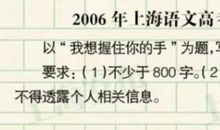 2006 年上海语文高
以“我想握住你的手”为题,写
要求:(1)不少于 800 字。(2
不得透露个人相关信息。